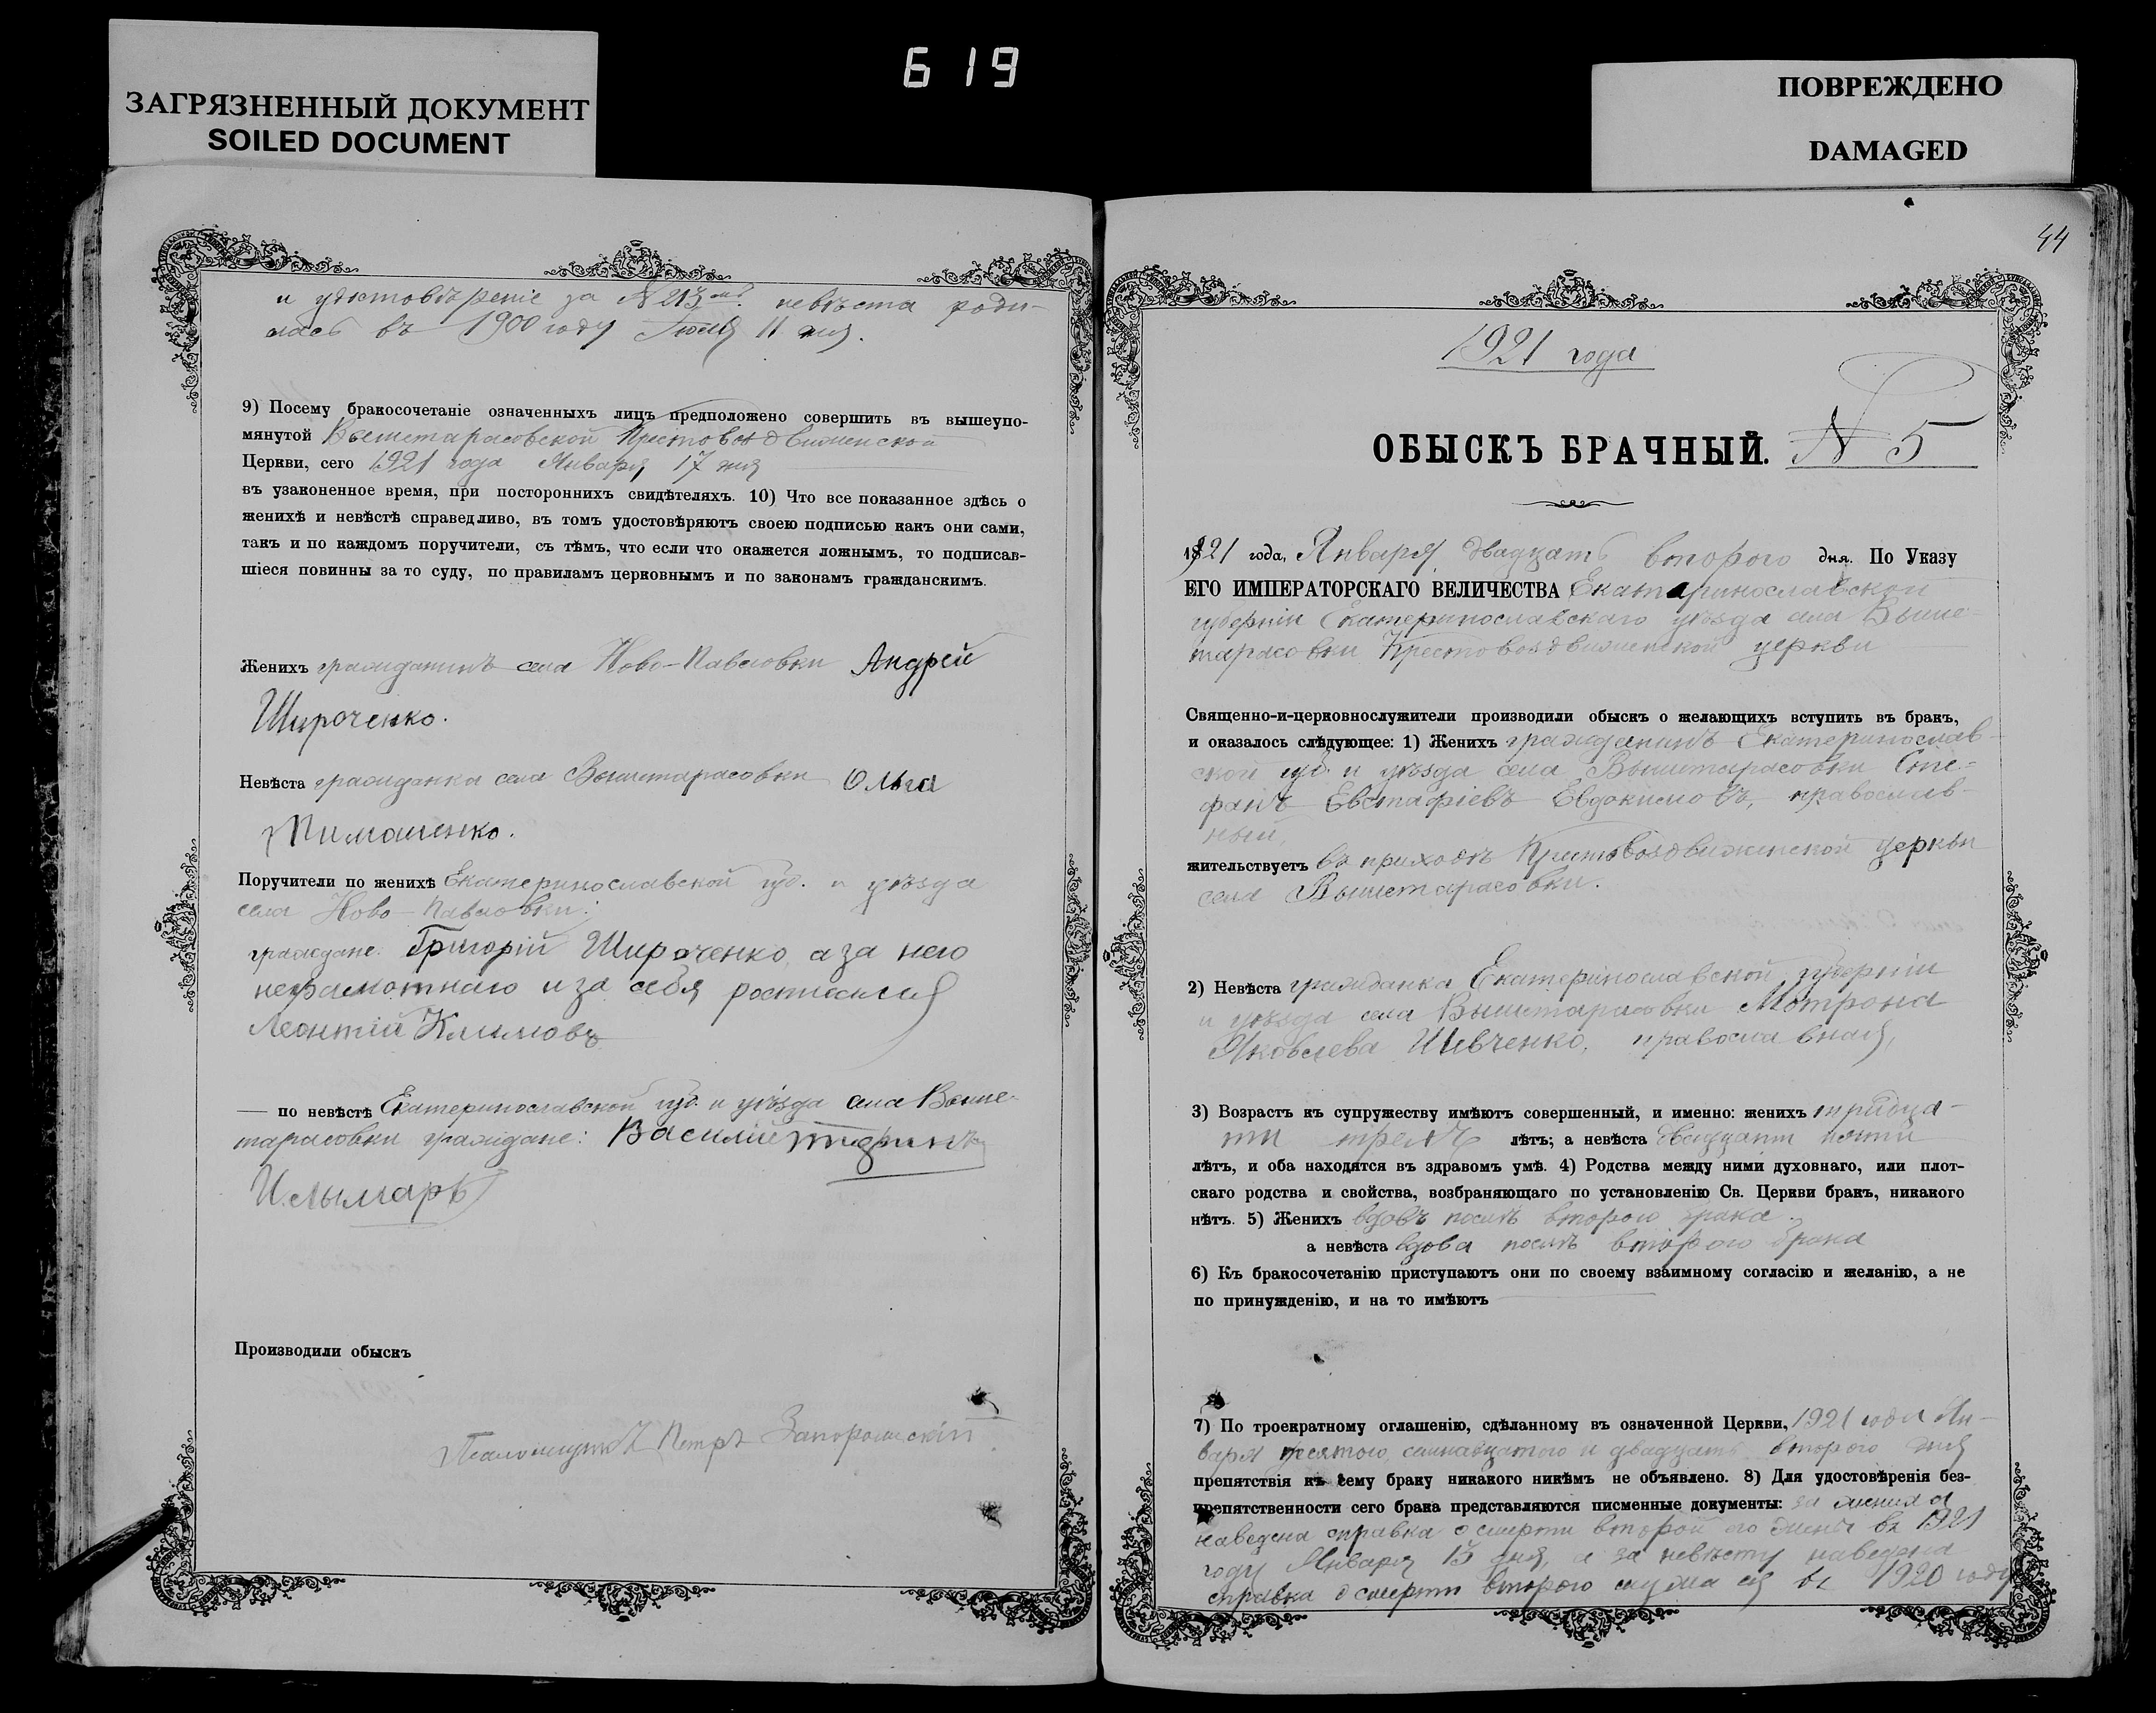 ЗАГРЯЗНЕННЫЙ ДОКУМЕНТ
SOILED DOCUMENT
619
ПОВРЕЖДЕНО
DAMAGED
и удостовѣреніе за № 213 невѣста роди-
лась въ 1900 году 11 дня.
9) Посему бракосочетаніе означенныхъ лицъ предположено совершить въ вышеупо-
мянутой Вышетарасовской Крестовоздвиженской
Церкви, сего 1921 года Января 17 дня
въ узаконенное время, при постороннихъ свидѣтеляхъ. 10) Что все показанное здѣсь о
женихѣ и невѣстѣ справедливо, въ томъ удостовѣряютъ своею подписью какъ они сами,
такъ и по каждомъ поручители, съ тѣмъ, что если что окажется ложнымъ, то подписав-
шіеся повинны за то суду, по правиламъ церковнымъ и по законамъ гражданскимъ.
Женихъ гражданинъ села Ново-Павловки Андрей
Широченко.
Невѣста гражданка села Вышетарасовки Ольга
Тимошенко.
Поручители по женихѣ Екатеринославской губ. и уѣзда
села Ново-Павловки:
граждане: Григорій Широченко, а за него
неграмотнаго и за себя росписался
Леонтій Климовъ
— по невѣстѣ Екатеринославской губ. и уѣзда села Выше-
тарасовки граждане: Василій
Производили обыскъ
Псаломщикъ Петръ Запорожскій
44
1921 года
ОБЫСКЪ БРАЧНЫЙ. № 5
1921 года, Января двадцать второго дня. По Указу
ЕГО ИМПЕРАТОРСКАГО ВЕЛИЧЕСТВА Екатеринославской
губерніи Екатеринославскаго уѣзда села Выше-
тарасовки Крестовоздвиженской церкви
Священно-и-церковнослужители производили обыскъ о желающихъ вступить въ бракъ,
и оказалось слѣдующее: 1) Женихъ гражданинъ Екатеринослав-
ской губ. и уѣзда села Вышетарасовки Сте-
фанъ Евстафіевъ Евдокимовъ, православ-
ный,
жительствуетъ въ приходѣ Крестовоздвиженской церкви
села Вышетарасовки.
2) Невѣста гражданка Екатеринославской губерніи
и уѣзда села Вышетарасовки Мотрона
Яковлева Шевченко, православная,
3) Возрастъ къ супружеству имѣютъ совершенный, и именно: женихъ тридца-
ти трехъ лѣтъ; а невѣста двадцати пяти
лѣтъ, и оба находятся въ здравомъ умѣ. 4) Родства между ними духовнаго, или плот-
скаго родства и свойства, возбраняющаго по установленію Св. Церкви бракъ, никакого
нѣтъ. 5) Женихъ вдовъ послѣ второго брака.
а невѣста вдова послѣ второго брака
6) Къ бракосочетанію приступаютъ они по своему взаимному согласію и желанію, а не
по принужденію, и на то имѣютъ
7) По троекратному оглашенію, сдѣланному въ означенной Церкви, 1921 года Ян-
варя десятого, семнадцатого и двадцать второго дня
препятствія къ сему браку никакого никѣмъ не объявлено. 8) Для удостовѣренія без-
препятственности сего брака представляются писменные документы: за жениха
наведена справка о смерти второй его жены въ 1921
году Января 13 дня, а за невѣсту наведена
справка о смерти второго мужа ея въ 1920 году